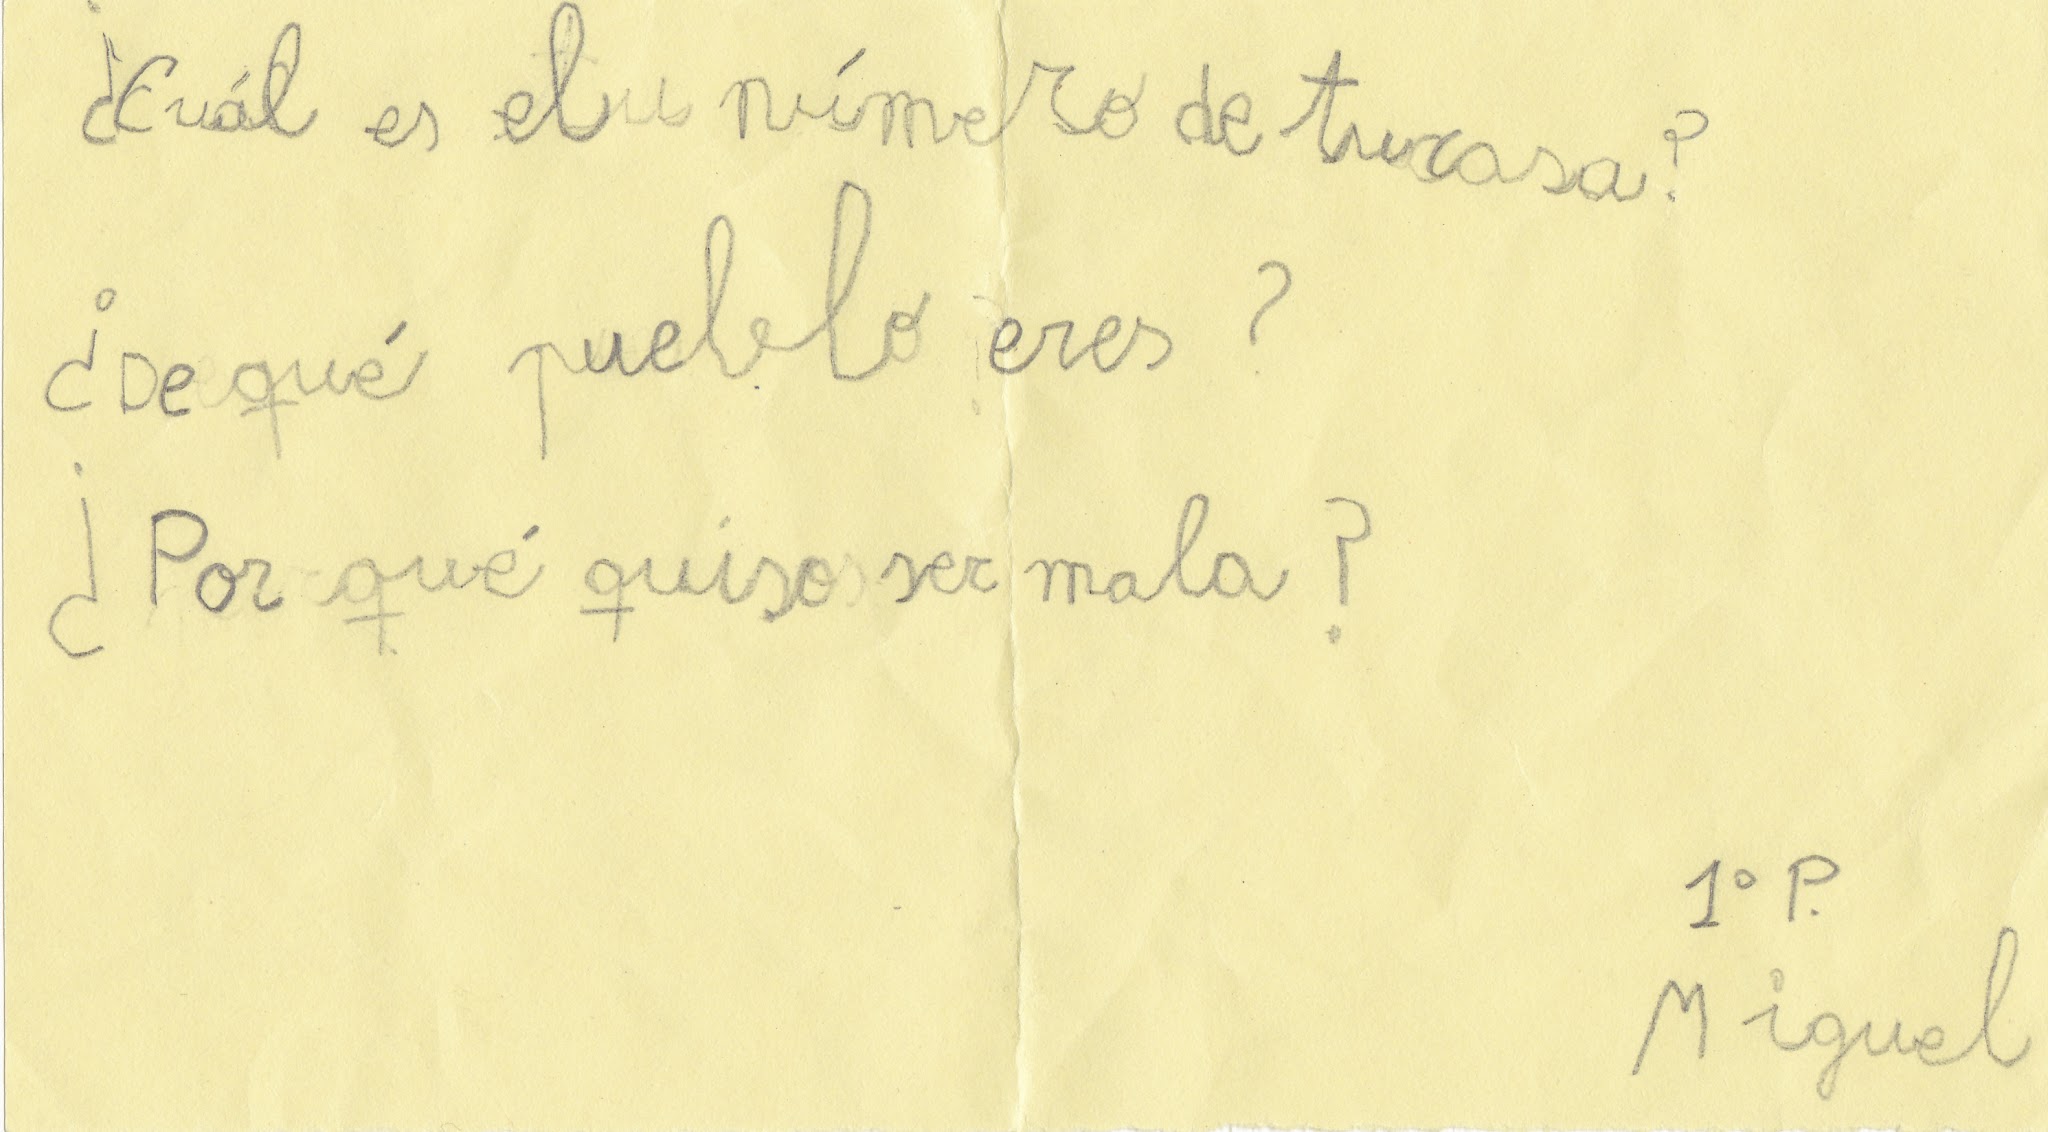 ¿Cuál es el número de tu casa?
¿De qué pueblo eres?
¿Por qué quiso ser mala?
1º P.
Miguel